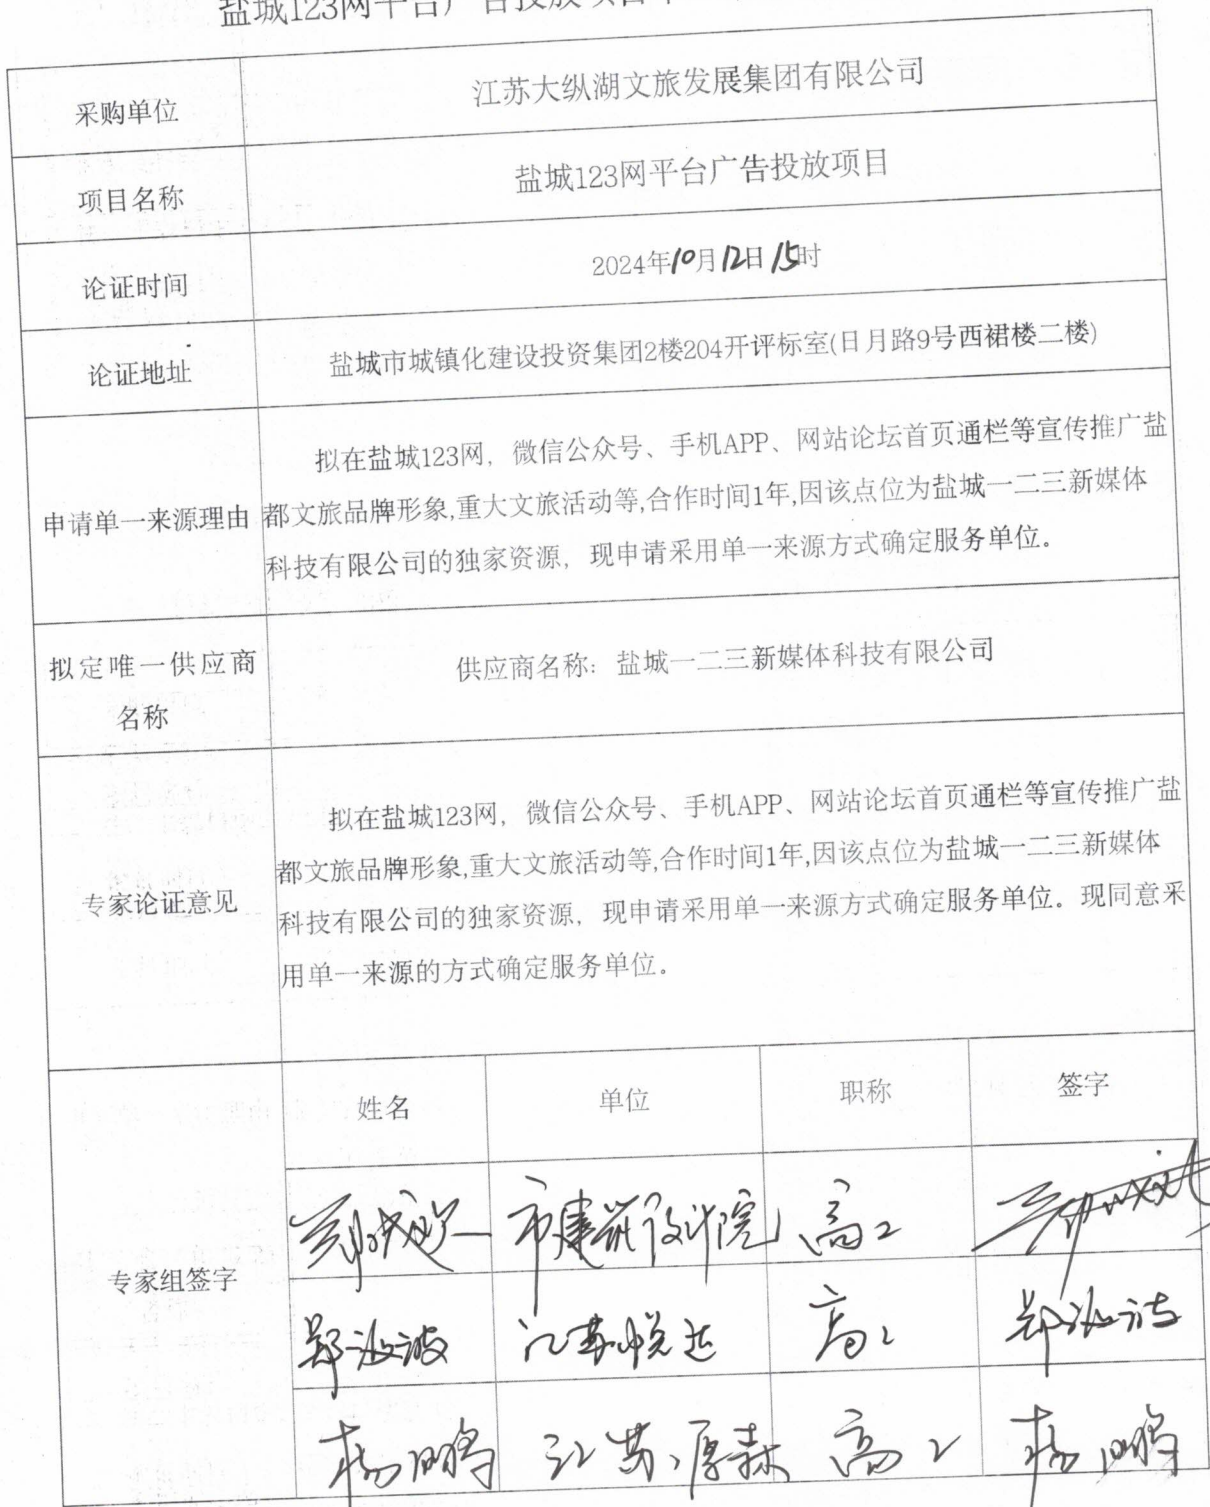 盐城123网平台广告投放项目
采购单位
江苏大纵湖文旅发展集团有限公司
项目名称
盐城123网平台广告投放项目
论证时间
2024年10月12日15时
论证地址
盐城市城镇化建设投资集团2楼204开评标室(日月路9号西裙楼二楼)
申请单一来源理由
拟在盐城123网，微信公众号、手机APP、网站论坛首页通栏等宣传推广盐
都文旅品牌形象,重大文旅活动等,合作时间1年,因该点位为盐城一二三新媒体
科技有限公司的独家资源，现申请采用单一来源方式确定服务单位。
拟定唯一供应商
名称
供应商名称：盐城一二三新媒体科技有限公司
专家论证意见
拟在盐城123网，微信公众号、手机APP、网站论坛首页通栏等宣传推广盐
都文旅品牌形象,重大文旅活动等,合作时间1年,因该点位为盐城一二三新媒体
科技有限公司的独家资源，现申请采用单一来源方式确定服务单位。现同意采
用单一来源的方式确定服务单位。
专家组签字
姓名 单位 职称 签字
市建筑设计院 高工
郑波波 江苏悦达 高工 郑波波
杨鹏 江苏厚森 高工 杨鹏